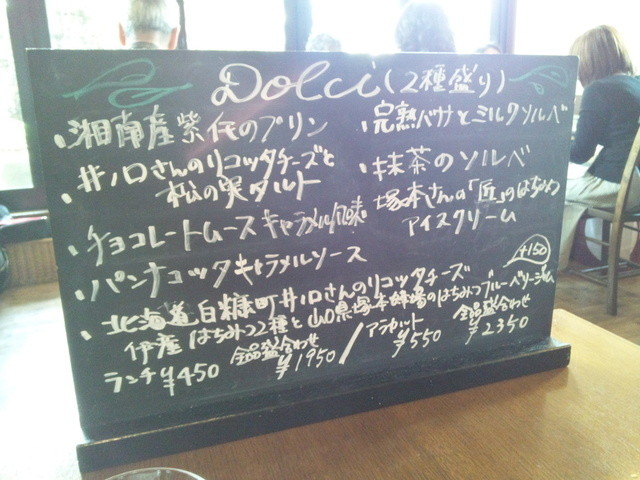 Dolci (2種盛り)
・湘南産紫芋のプリン
・井ノ口さんのリコッタチーズと
松の実タルト
・チョコレートムース キャラメル風味
・パンナコッタキャラメルソース
・完熟バナナとミルクソルベ
・抹茶のソルベ
・塚本さんの「匠」のはちみつ
アイスクリーム
+150
・北海道白糠町井ノ口さんのリコッタチーズ
伊産はちみつ2種と山口県塚本 のはちみつブルーベリージャム
ランチ ¥450 全品盛合わせ ¥1950 / アラカルト ¥550 全品盛合わせ ¥2350